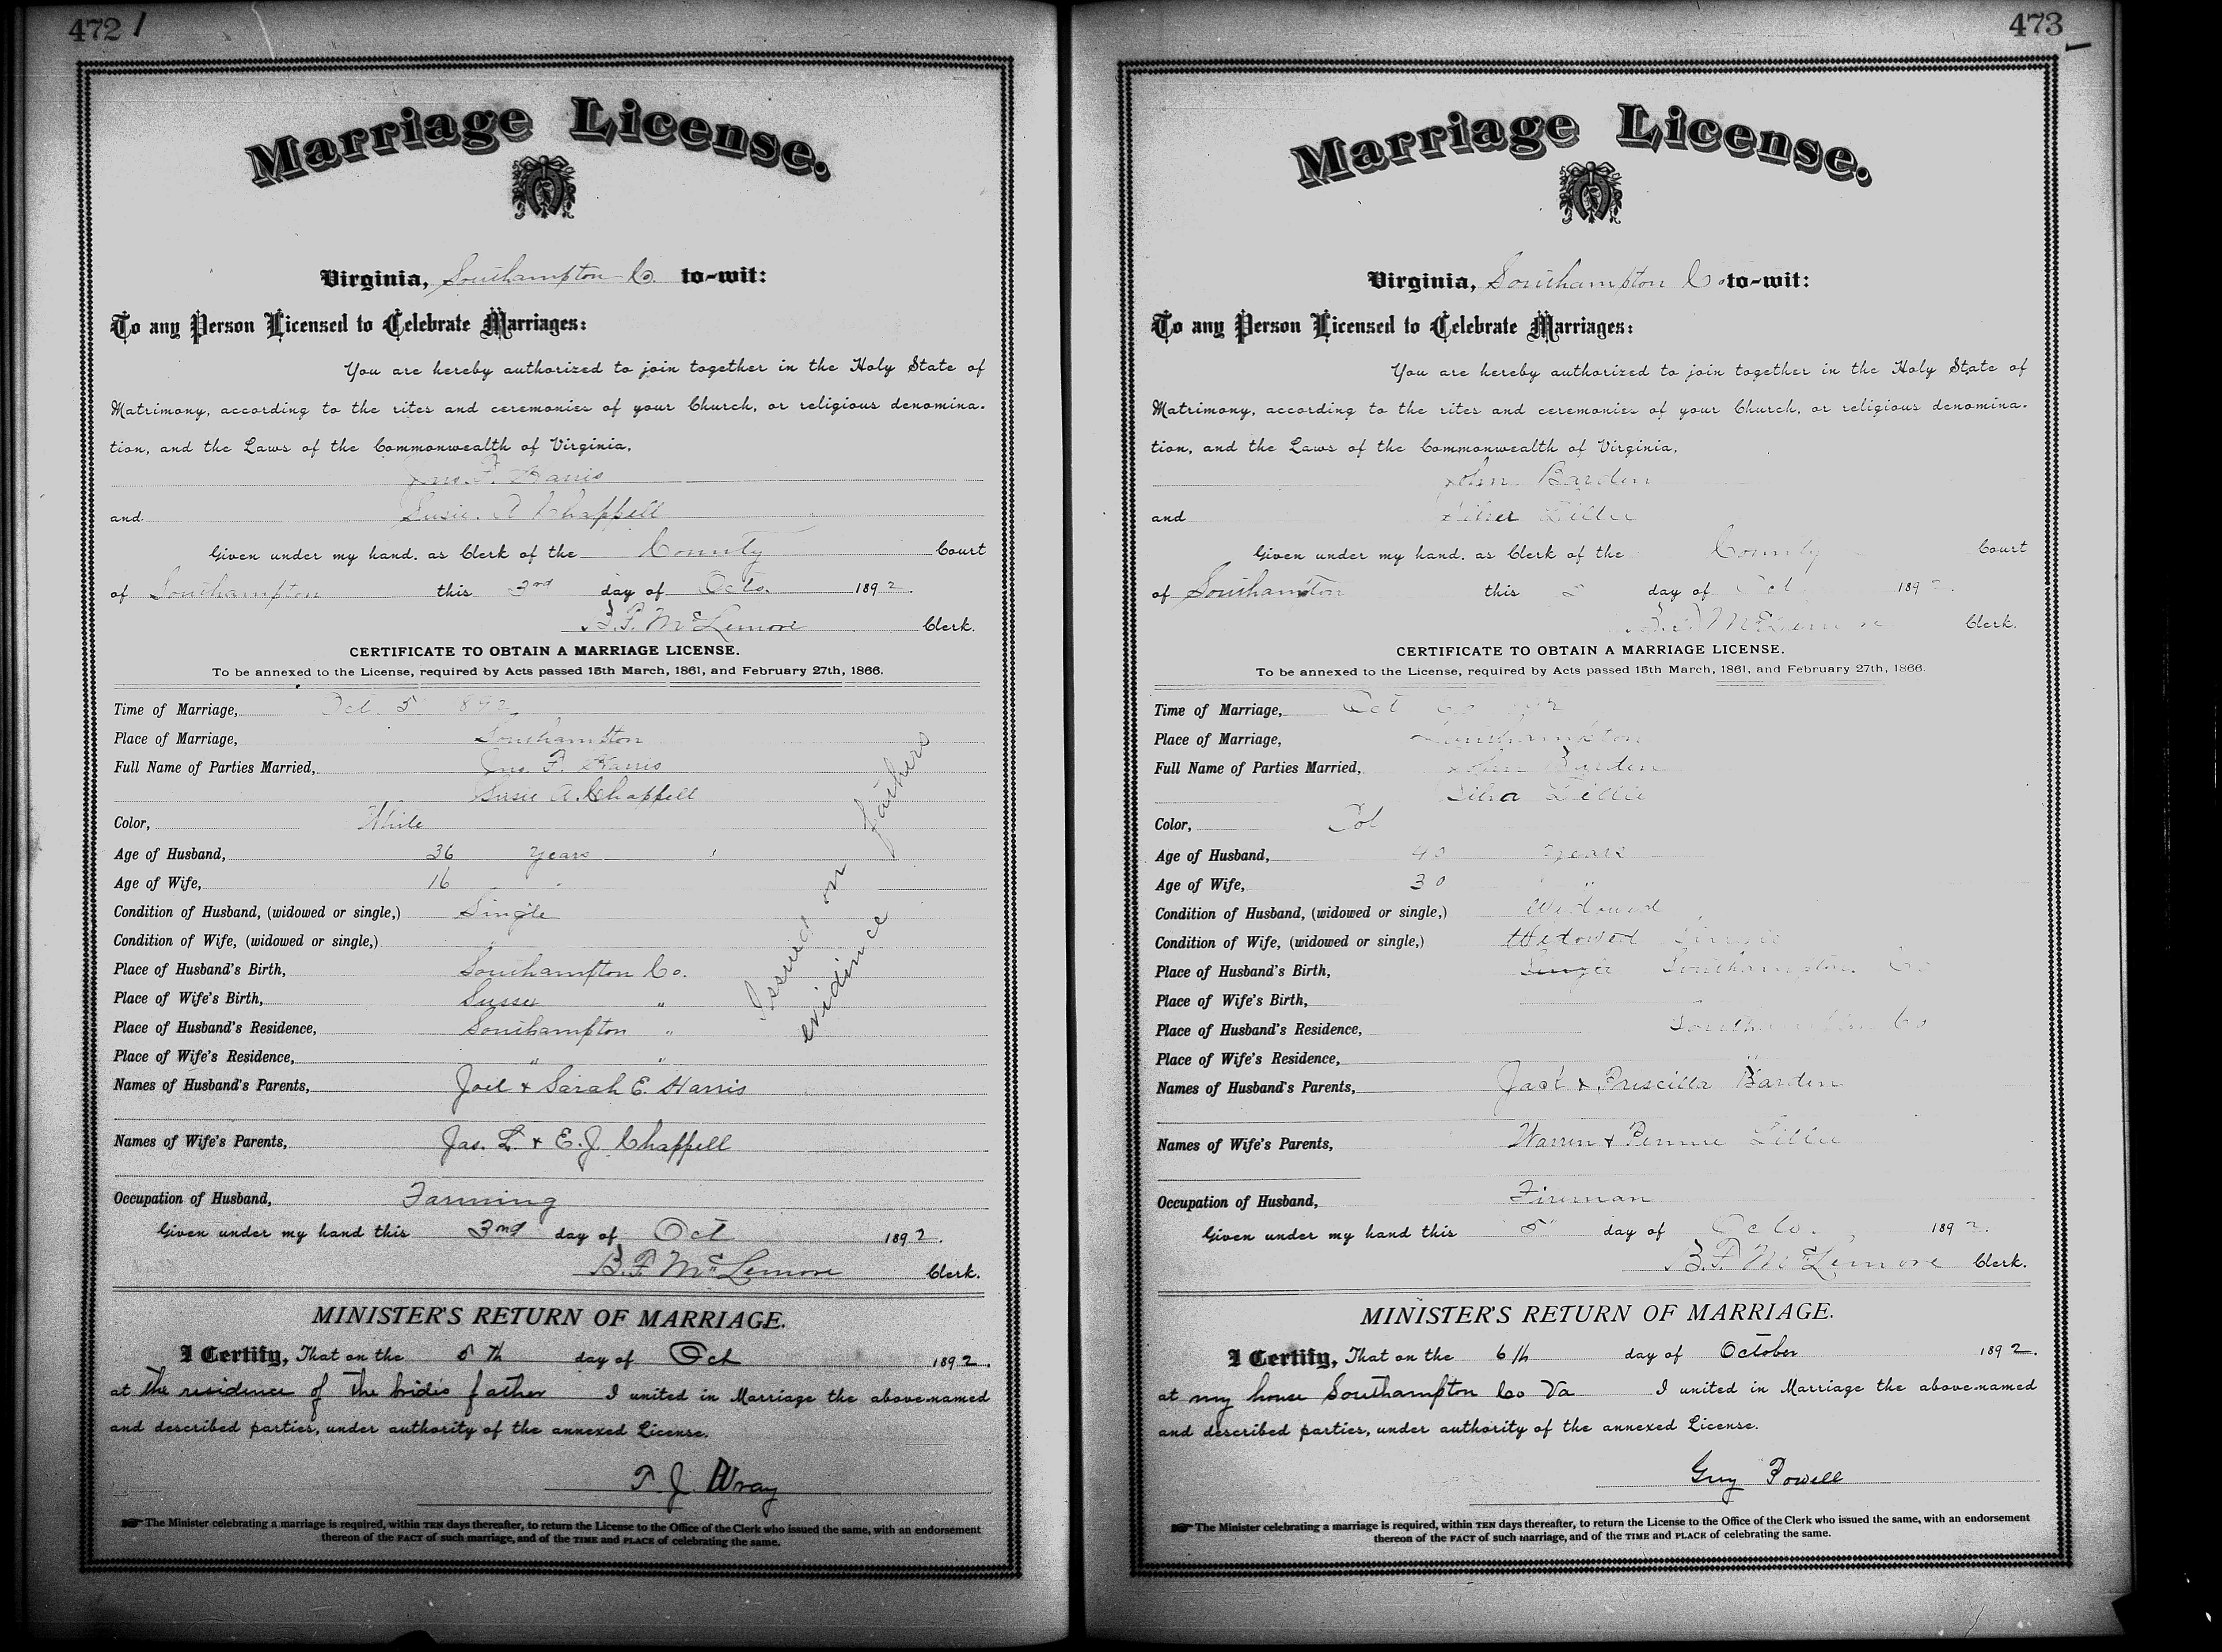 472
Marriage License.
Virginia, Southampton Co. to-wit:
To any Person Licensed to Celebrate Marriages:
You are hereby authorized to join together in the Holy State of
Matrimony, according to the rites and ceremonies of your Church, or religious denomina-
tion, and the Laws of the Commonwealth of Virginia,
Jno. F. Harris
and Susie. A Chappell
Given under my hand, as Clerk of the County Court
of Southampton this 3rd day of Octo. 1892.
B. F. McLemore Clerk.
CERTIFICATE TO OBTAIN A MARRIAGE LICENSE.
To be annexed to the License, required by Acts passed 15th March, 1861, and February 27th, 1866.
Time of Marriage, Oct. 5 892
Place of Marriage, Southampton
Full Name of Parties Married, Jno. F. Harris
Susie A. Chappell
Color, White
Age of Husband, 36 years
Age of Wife, 16 "
Condition of Husband, (widowed or single,) Single
Condition of Wife, (widowed or single,)
Place of Husband's Birth, Southampton Co.
Place of Wife's Birth, Sussex "
Place of Husband's Residence, Southampton "
Place of Wife's Residence, " "
Names of Husband's Parents, Joel & Sarah E. Harris
Names of Wife's Parents, Jas. L. & E. J. Chappell
Occupation of Husband, Farming
Issued on fathers
evidince
Given under my hand this 3rd day of Oct 1892.
B. F. McLemore Clerk.
MINISTER'S RETURN OF MARRIAGE.
I Certify, That on the 5 Th day of Oct 1892.
at the residence of the brides father I united in Marriage the above-named
and described parties, under authority of the annexed License.
P. J. Wray
The Minister celebrating a marriage is required, within TEN days thereafter, to return the License to the Office of the Clerk who issued the same, with an endorsement
thereof of the FACT of such marriage, and of the TIME and PLACE of celebrating the same.
473
Marriage License.
Virginia, Southampton Co to-wit:
To any Person Licensed to Celebrate Marriages:
You are hereby authorized to join together in the Holy State of
Matrimony, according to the rites and ceremonies of your Church, or religious denomina-
tion, and the Laws of the Commonwealth of Virginia,
John Barden
and Lillie
Given under my hand, as Clerk of the County Court
of Southampton this 5 day of Oct 189
B. F. McLemore Clerk.
CERTIFICATE TO OBTAIN A MARRIAGE LICENSE.
To be annexed to the License, required by Acts passed 15th March, 1861, and February 27th, 1866.
Time of Marriage, Oct
Place of Marriage, Southampton
Full Name of Parties Married, John Barden
Lillie
Color, Col
Age of Husband, 40 years
Age of Wife, 30 "
Condition of Husband, (widowed or single,) Widowed
Condition of Wife, (widowed or single,) Widowed Single
Place of Husband's Birth, Single Southampton Co
Place of Wife's Birth,
Place of Husband's Residence, Southampton Co
Place of Wife's Residence, "
Names of Husband's Parents, Jack & Priscilla Barden
Names of Wife's Parents, Warren & Pennie Lillie
Occupation of Husband, Fireman
Given under my hand this 5" day of Octo. 1892.
B. F. McLemore Clerk.
MINISTER'S RETURN OF MARRIAGE.
I Certify, That on the 6 th day of October 1892.
at my house Southampton Co Va I united in Marriage the above-named
and described parties, under authority of the annexed License.
Guy Powell
The Minister celebrating a marriage is required, within TEN days thereafter, to return the License to the Office of the Clerk who issued the same, with an endorsement
thereof of the FACT of such marriage, and of the TIME and PLACE of celebrating the same.